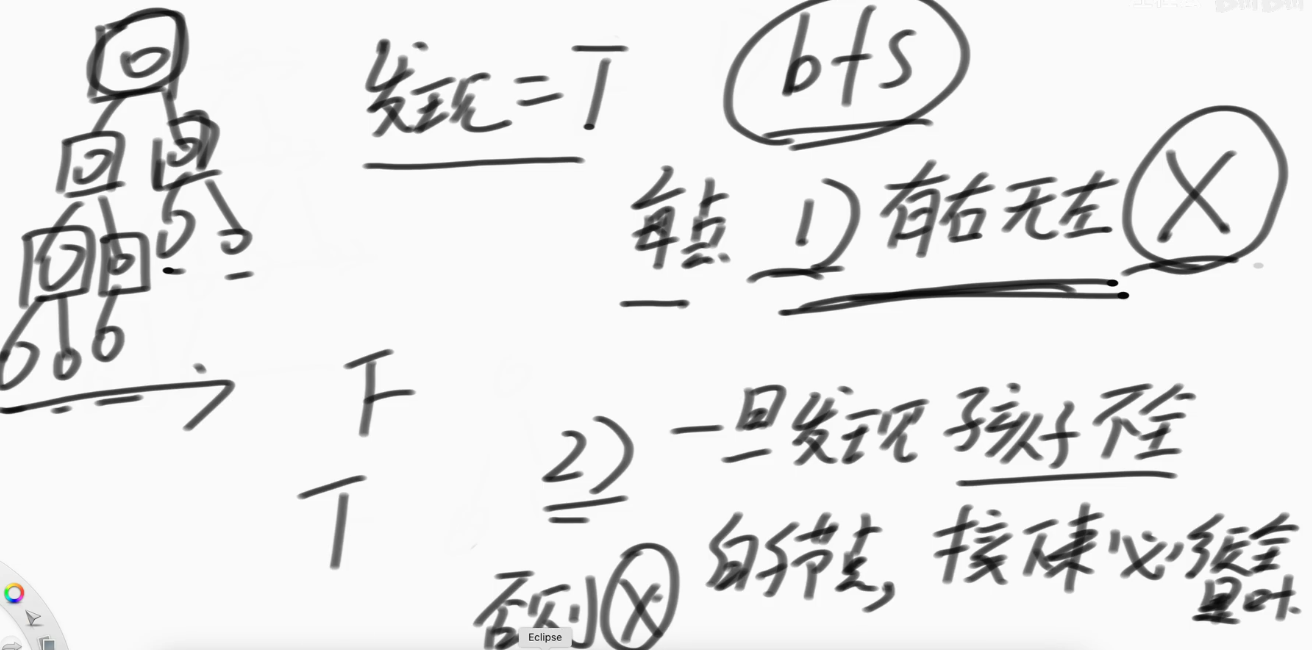 发现=T
bfs
每点 1) 有右无左 X
F
2) 一旦发现孩子不全
T
的节点, 接下来必须全是叶
否则 X
Eclipse